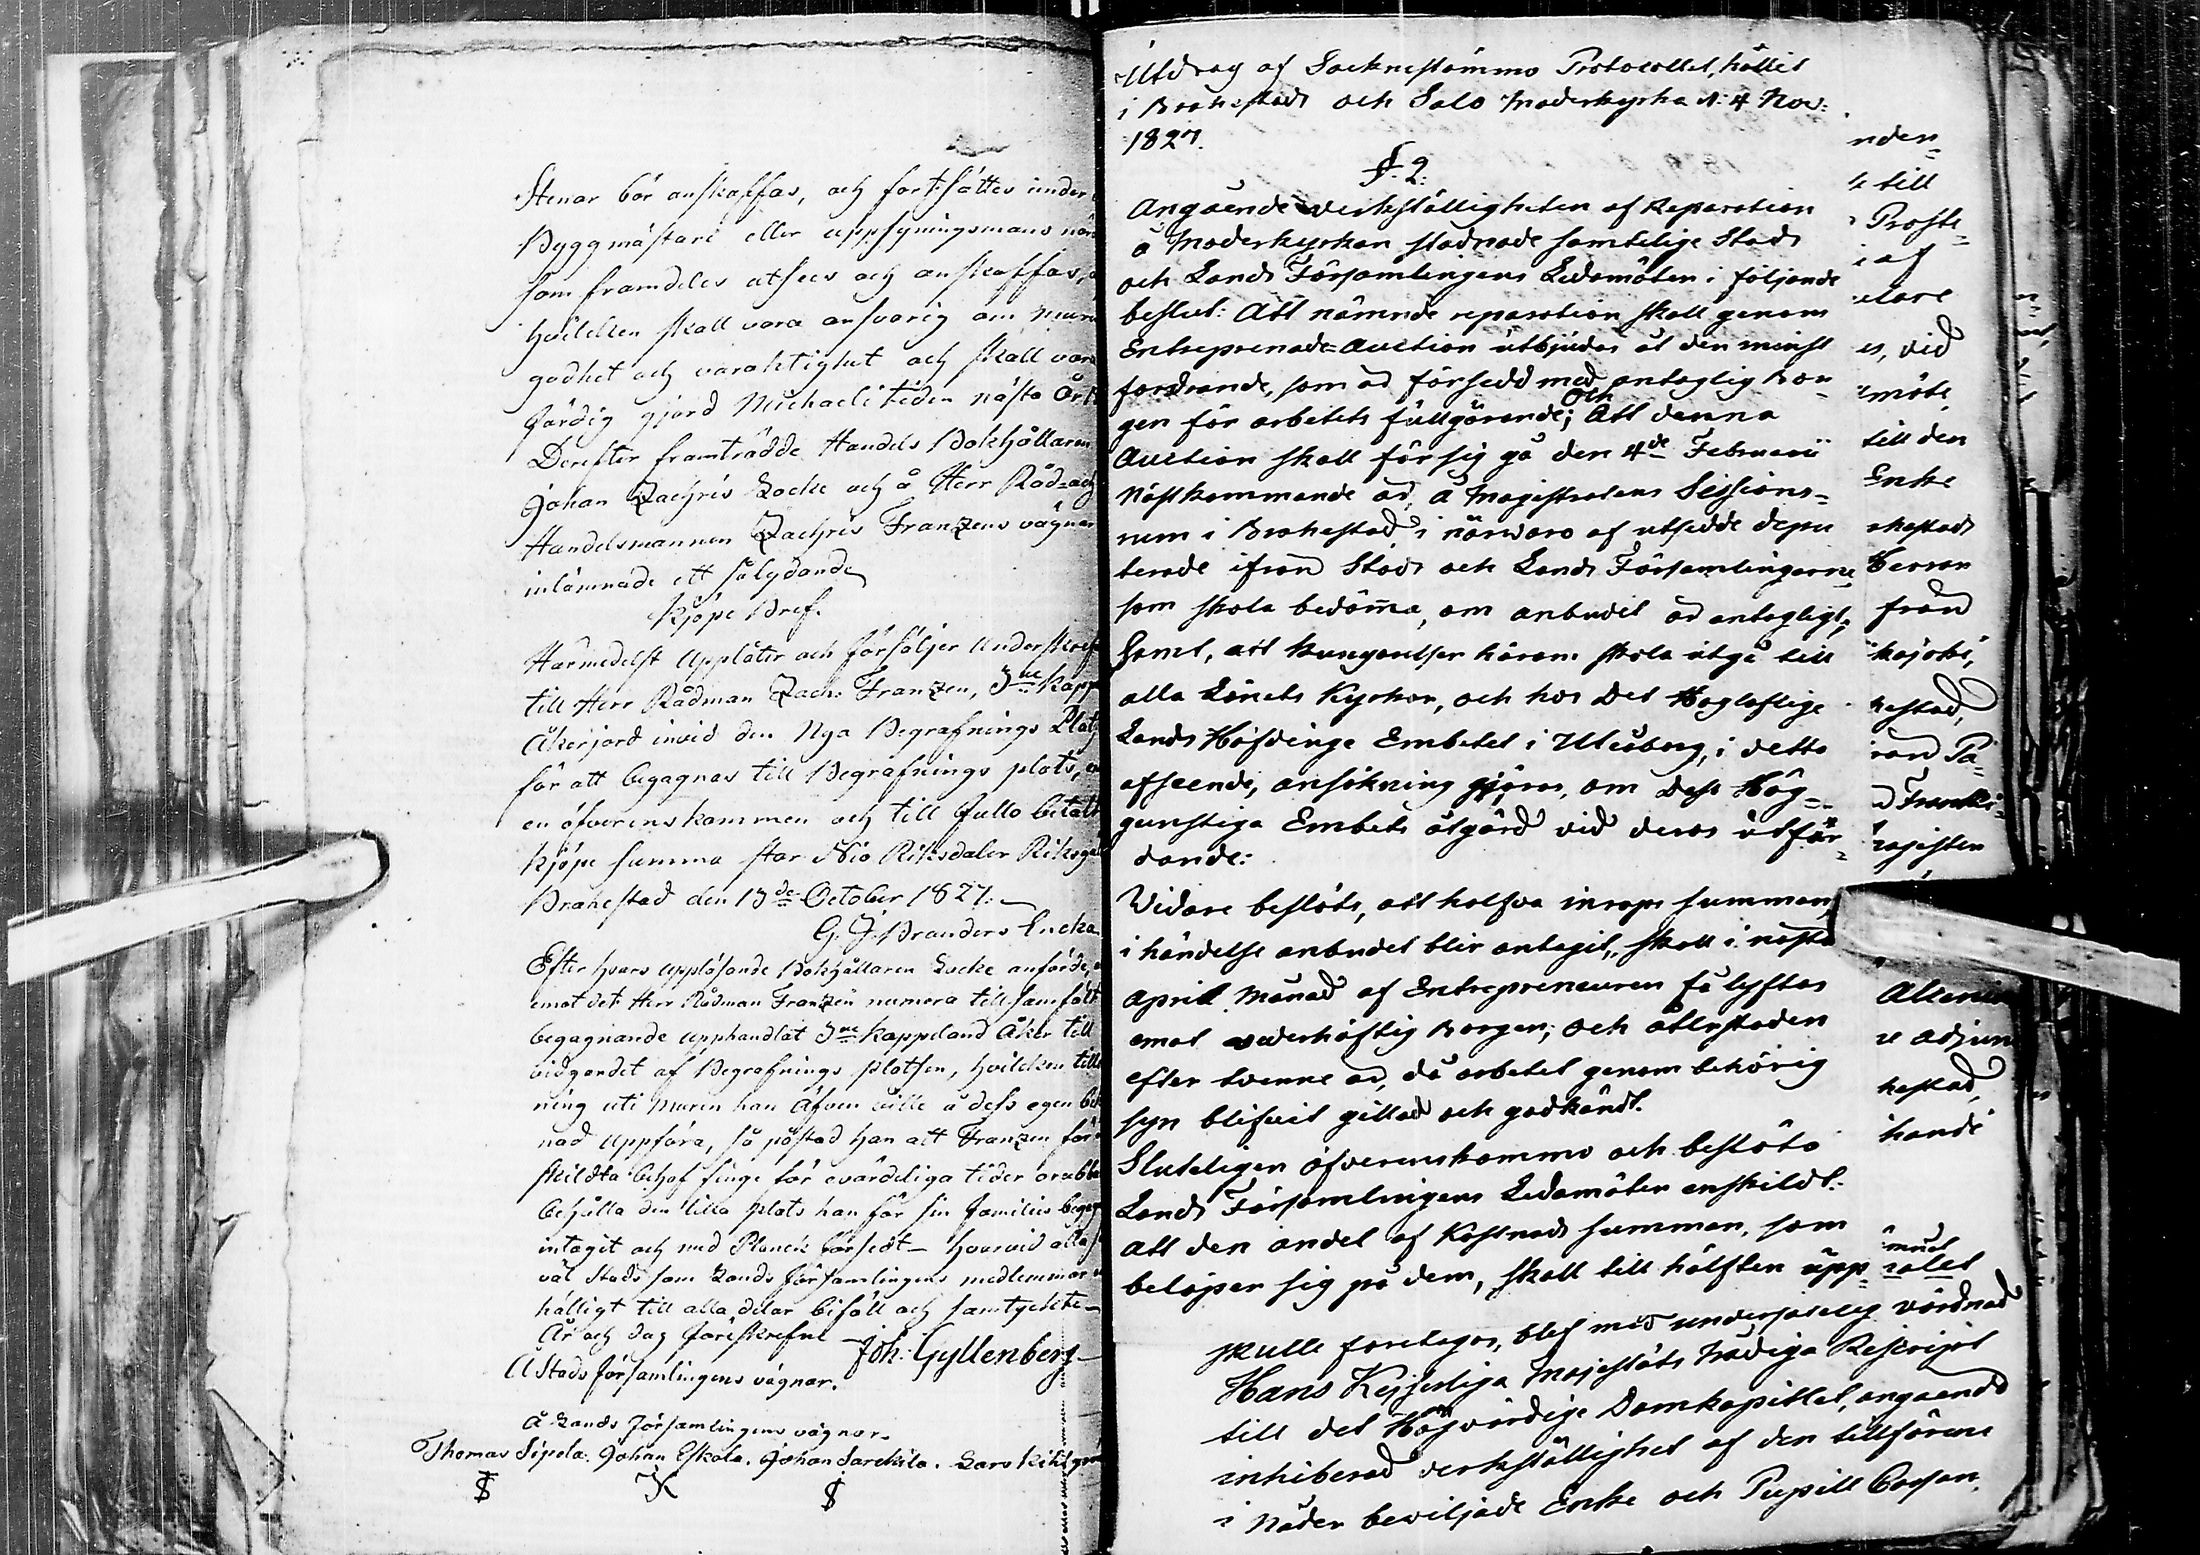 Stenar bör anskaffas, och fortsättes under
Byggmästare eller uppsyningsmans
som framdeles utsees och anskaffas,
hvilcken skall vara ansvarig om
godhet och varaktighet och skall vara
färdig gjord Michaeli tiden nästa År
Derefter framträdde Handels Bokhållaren
Johan Zachris Locke och å Herr Råd= och
Handelsmannen Zachris Franzens vägnar
inlämnade ett sålydande
Kjöpe Bref.
Härmedelst Upplåter och försäljer
till Herr Rådman Zach: Franzen, 3ne
Åkerjord invid den Nya Begrafnings Plats
för att begagnas till Begrafnings plats,
en öfverenskommen och till fullo
Kjöpe summa stor Nio Riksdaler
Brahestad den 13de October 1827.
G. J. Branders Encka
Efter hvars uppläsande Bokhållaren Locke anförde,
emot det Herr Rådman Franzén numera till
begagnande upphandlat 3ne Kappeland Åker till
vidgandet af Begrafnings platsen, hvilcken
ning uti muren han äfven ville å dess egen
nad uppföra, så påstod han att Franzen
skildta behof finge för evärdeliga tider
behålla den lilla plats han för sin families
intagit och med Planck försedt - hvarvid
väl Stads som Lands församlingens medlemmar
hälligt till alla delar biföll och samtyckte -
År och dag föreskrefne - Joh: Gyllenberg
Å Stads församlingens vägnar.
Å Lands församlingens vägnar.
Thomas Sipola. Johan Eskola. Johan Sarckila. Lars
Utdrag af Socknestämmo Protocollet, hållit
i Brahestads och Salo Moderkyrka d: 4 Nov:
1827.
§. 2:
Angående verkställigheten af Reparation
å Moderkyrkan stadnade samtelige Stads
och Lands Församlingens Ledamöter i följande
beslut: Att nämnde reparation skall genom
Entreprenade-Auction utbjudas åt den minst
fordrande, som är försedd med antaglig Bor=
gen för arbetets fullgörande; och Att denna
Auction skall för sig gå den 4de Februarii
nästkommande år, å Magistratens Sessions=
rum i Brahestad, i närvaro af utsedde depu
terade ifrån Stads och Lands Församlingarne
som skola bedöma, om anbudet är antagligt,
Samt, att kungörelser härom skola utgå till
alla Länets Kyrkor, och hos Det Högloflige
Lands Höfdinge Embetet i Uleåborg, i detta
afseende, ansökning gjöras, om Dess Hög=
gunstiga Embets åtgärd vid deras utfär=
dande:
Vidare beslöts, att halfva inrops summan,
i händelse anbudet blir antagit, skall i nästa
April Månad af Entrepreneuren få lyftas
emot vederhäftig Borgen; och återstoden
efter tvenne år, då arbetet genom behörig
syn blifvit gillad och godkändt.
Sluteligen öfverenskommo och beslöto
Lands Församlingens Ledamöter enskildt:
att den andel af Kostnads summan, som
belöper sig på dem, skall till hälften upp=
nden=
till
Proste=
af
elare
es, vid
möte
till den
Enke
hestads
Herron
från
kajoki,
hestad,
ron Pa=
Allenius
hestad,
skulle foretagas, blef med undersåtelig vördnad
Hans Kejserliga Majestäts Nådiga Rescript
till det Högvördige Domkapitlet, angående
inhiberad verkställighet af den tillförene
i Nåder beviljade Enke och Pupill Cassan,